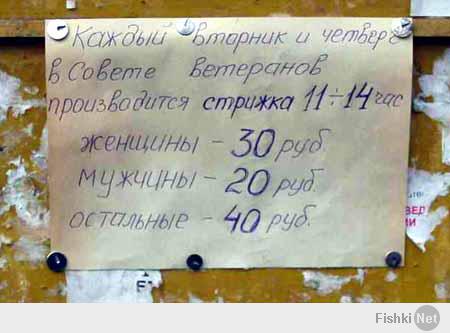 Каждый вторник и четверг
в Совете ветеранов
производится стрижка 11÷14 час
женщины - 30 руб.
мужчины - 20 руб.
остальные - 40 руб.
Fishki Net